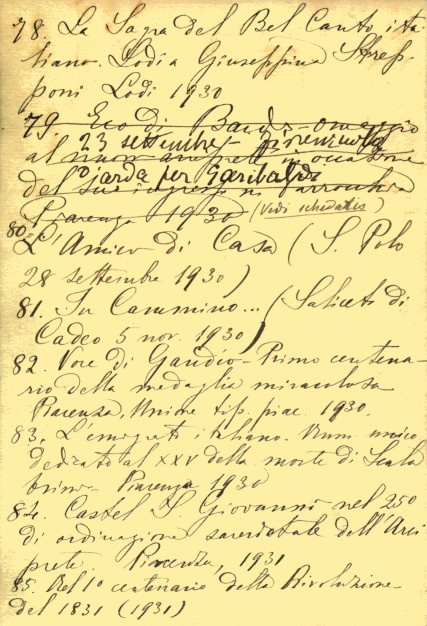 78. La Sagra del Bel Canto ita
liano. Lodi a Giuseppina Strep-
poni Lodi 1930
79 Eco di Bardi - omaggio
23 settembre - Fiorenzuola
al nuovo arciprete in occasione
d'arda per Garibaldi
del suo ingresso in parrocchia
Piacenza 1930 (Vedi schedatis)
80. L'Amico di Casa (S. Polo
28 settembre 1930)
81. In Cammino... (Saliceto di
Cadeo 5 nov. 1930)
82. Voce di Gaudio - Primo centena-
rio della medaglia miracolosa
Piacenza, Unione tip. piac. 1930.
83. L'emigrati italiano. Num. unico
dedicato al XXV della morte di Scala
brini - Piacenza 1930
84. Castel S Giovanni nel 250
di ordinazione sacerdotale dell'Arci
prete. Piacenza, 1931
85. Nel 1° centenario della Rivoluzione
del 1831 (1931)